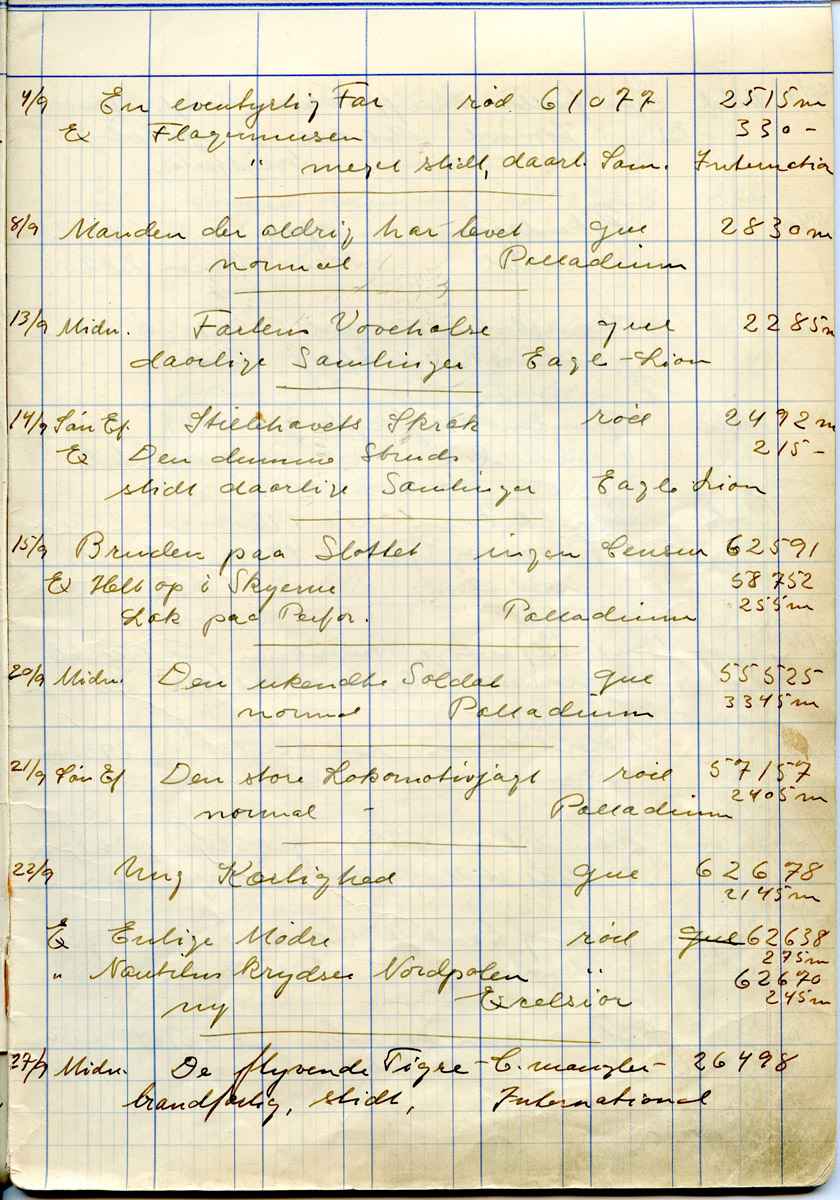 4/9 En eventyrlig Far rød. 61077 2515m
Ex Flagermusen 330-
" meget slidt, daarl. Sam. Internatio
8/9 Manden der aldrig har levet gul 2830m
normal Palladium
13/9 Midn. Fartens Vovehalse gul 2285m
daarlige Samlinger Eagle-Lion
14/9 Søn Ef. Stillehavets Skræk rød 2492m
Ex Den dumme Struds 215-
slidt daarlige Samlinger Eagle Lion
15/9 Bruden paa Slottet ingen Censur 62591
Ex Helt op i Skyerne 58752
Lak paa Perfor. Palladium 255m
20/9 Midn. Den ukendte Soldat gul 55525
normal Palladium 3345m
21/9 Søn Ef Den store Lokomotivjagt rød 57157
normal - Palladium 2405m
22/9 Ung Kærlighed gul 62678
2145m
Ex Enlige Mødre rød gul 62638
275m
" Nautilus krydser Nordpolen " 62670
ny Excelsior 245m
27/9 Midn. De flyvende Tigre - C. mangler - 26498
brandfarlig, slidt, International